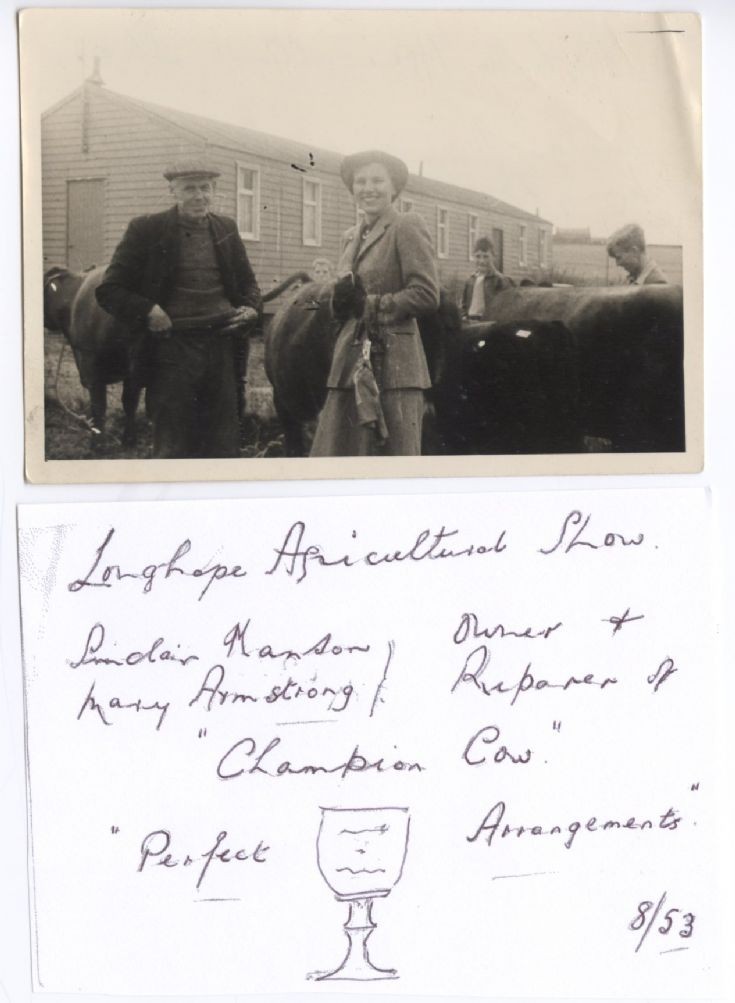 Longhope Agricultural Show.
Sinclair Manson } Owner &
Mary Armstrong } Reparer of
"Champion Cow."
"Perfect Arrangements".
8/53